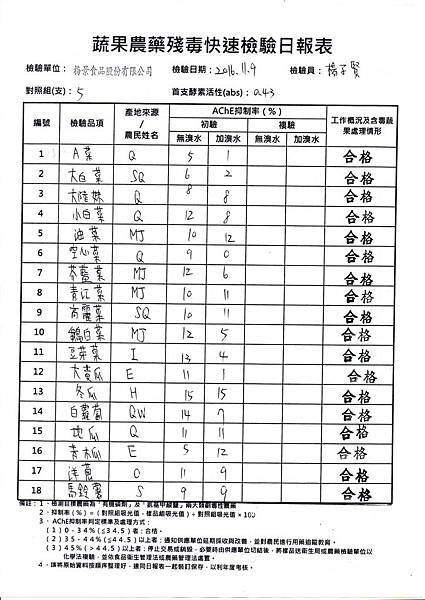 蔬果農藥殘毒快速檢驗日報表
檢驗單位： 裕景食品股份有限公司 檢驗日期：2016.11.9 檢驗員：楊子賢
對照組(支)：5 首支酵素活性(abs)：0.43
編號 檢驗品項 產地來源/農民姓名 AChE抑制率（%） 工作概況及含毒蔬果處理情形
初驗 複驗
無溴水 加溴水 無溴水 加溴水
1 A菜 Q 5 1 合格
2 大白菜 SQ 6 2 合格
3 大陸妹 Q 8 8 合格
4 小白菜 Q 12 8 合格
5 油菜 MJ 10 12 合格
6 空心菜 Q 9 0 合格
7 芥藍菜 MJ 12 6 合格
8 青江菜 MJ 10 11 合格
9 高麗菜 SQ 10 11 合格
10 鵝白菜 MJ 12 5 合格
11 豆芽菜 I 13 4 合格
12 大黃瓜 E 11 1 合格
13 冬瓜 H 15 15 合格
14 白蘿蔔 QW 14 7 合格
15 地瓜 Q 11 11 合格
16 青木瓜 E 5 12 合格
17 洋蔥 O 11 9 合格
18 馬鈴薯 S 9 9 合格
備註：1、檢測目標農藥為「有機磷劑」及「氨基甲酸鹽」兩大類劇毒性農藥
2、抑制率(%)=(對照組吸光值-樣品組吸光值)÷對照組吸光值×100
3、AChE抑制率判定標準及處理方式：
(1)0-34%(≦34.5)者：合格。
(2)35-44%(≦44.5)以上者：通知供應單位延期採收與改善，並對農民進行用藥追蹤教育。
(3)45%(>44.5)以上者：停止交易或銷毀，必要時由供應單位切結後，將樣品送衛生局或農藥檢驗單位以
化學法複驗，並依食品衛生管理法或農藥管理法處置。
4、請將原始資料按順序整理好，連同日報表一起裝訂保存，以利年度考核。